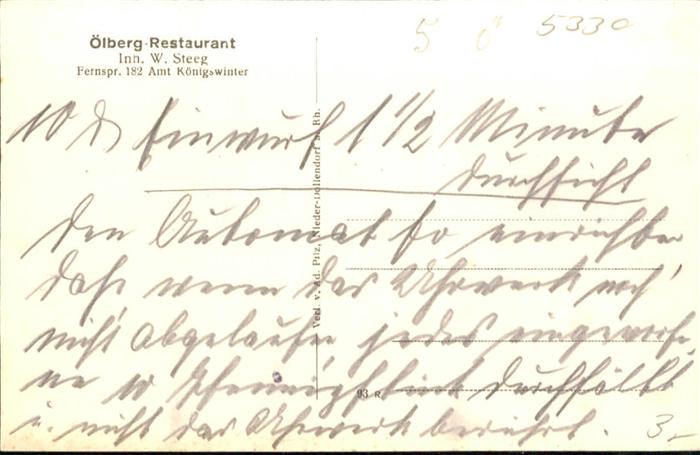 Ölberg-Restaurant
Inn. W. Steeg
Fernspr. 182 Amt Königswinter
5 6 5330
10 ₰ Einwurf 1 1/2 Minute
Durchsicht
den Automat so einrichten
daß wenn das Uhrwerk noch
nicht abgelaufen jedes eingeworfe-
ne 10 Pfennigstück durchfällt
u. nicht das Uhrwerk berührt.
3.-
Verl. v. Ad. Pilz, Nieder-Dollendorf a. Rh.
93 R